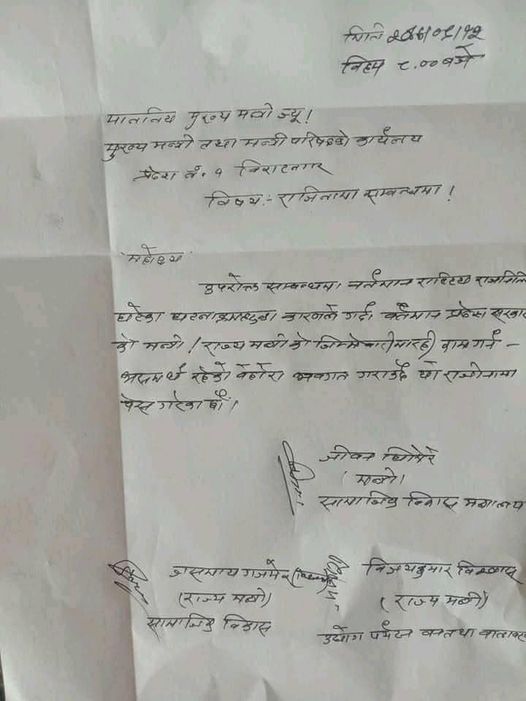 मिति २०७७/०९/१२
बिहान ८.०० बजे
माननिय मुख्य मन्त्री ज्यू!
मुख्य मन्त्री तथा मन्त्री परिषदको कार्यलय
प्रदेश नं. १ विराटनगर
विषय:- राजिनामा सम्बन्धमा!
महोदय
उपरोक्त सम्बन्धमा वर्तमान राष्ट्रिय राजनितिमा
घटेका घटना कारणले गर्दा वर्तमान प्रदेश सरकार
को मन्त्री/राज्य मन्त्री को जिम्मेवारीमा रही काम गर्न -
असमर्थ रहेको बेहोरा अवगत गराउँदै यो राजीनामा
पेस गरेका छौं।
जीवन घिमिरे
(मन्त्री)
सामाजिक विकास मन्त्रालय
जसमाया गजमेर
(राज्य मन्त्री)
सामाजिक विकास
विजयकुमार विश्वास
(राज्य मन्त्री)
उद्योग पर्यटन वन तथा वातावरण